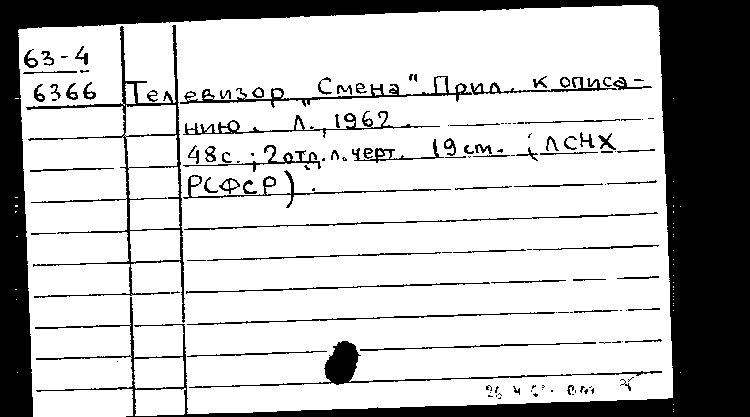 63-4
6366
Телевизор „Смена". Прил. к описа-
нию. Л., 1962.
48с.; 2 отд. л. черт. 19 см. (ЛСНХ
РСФСР).